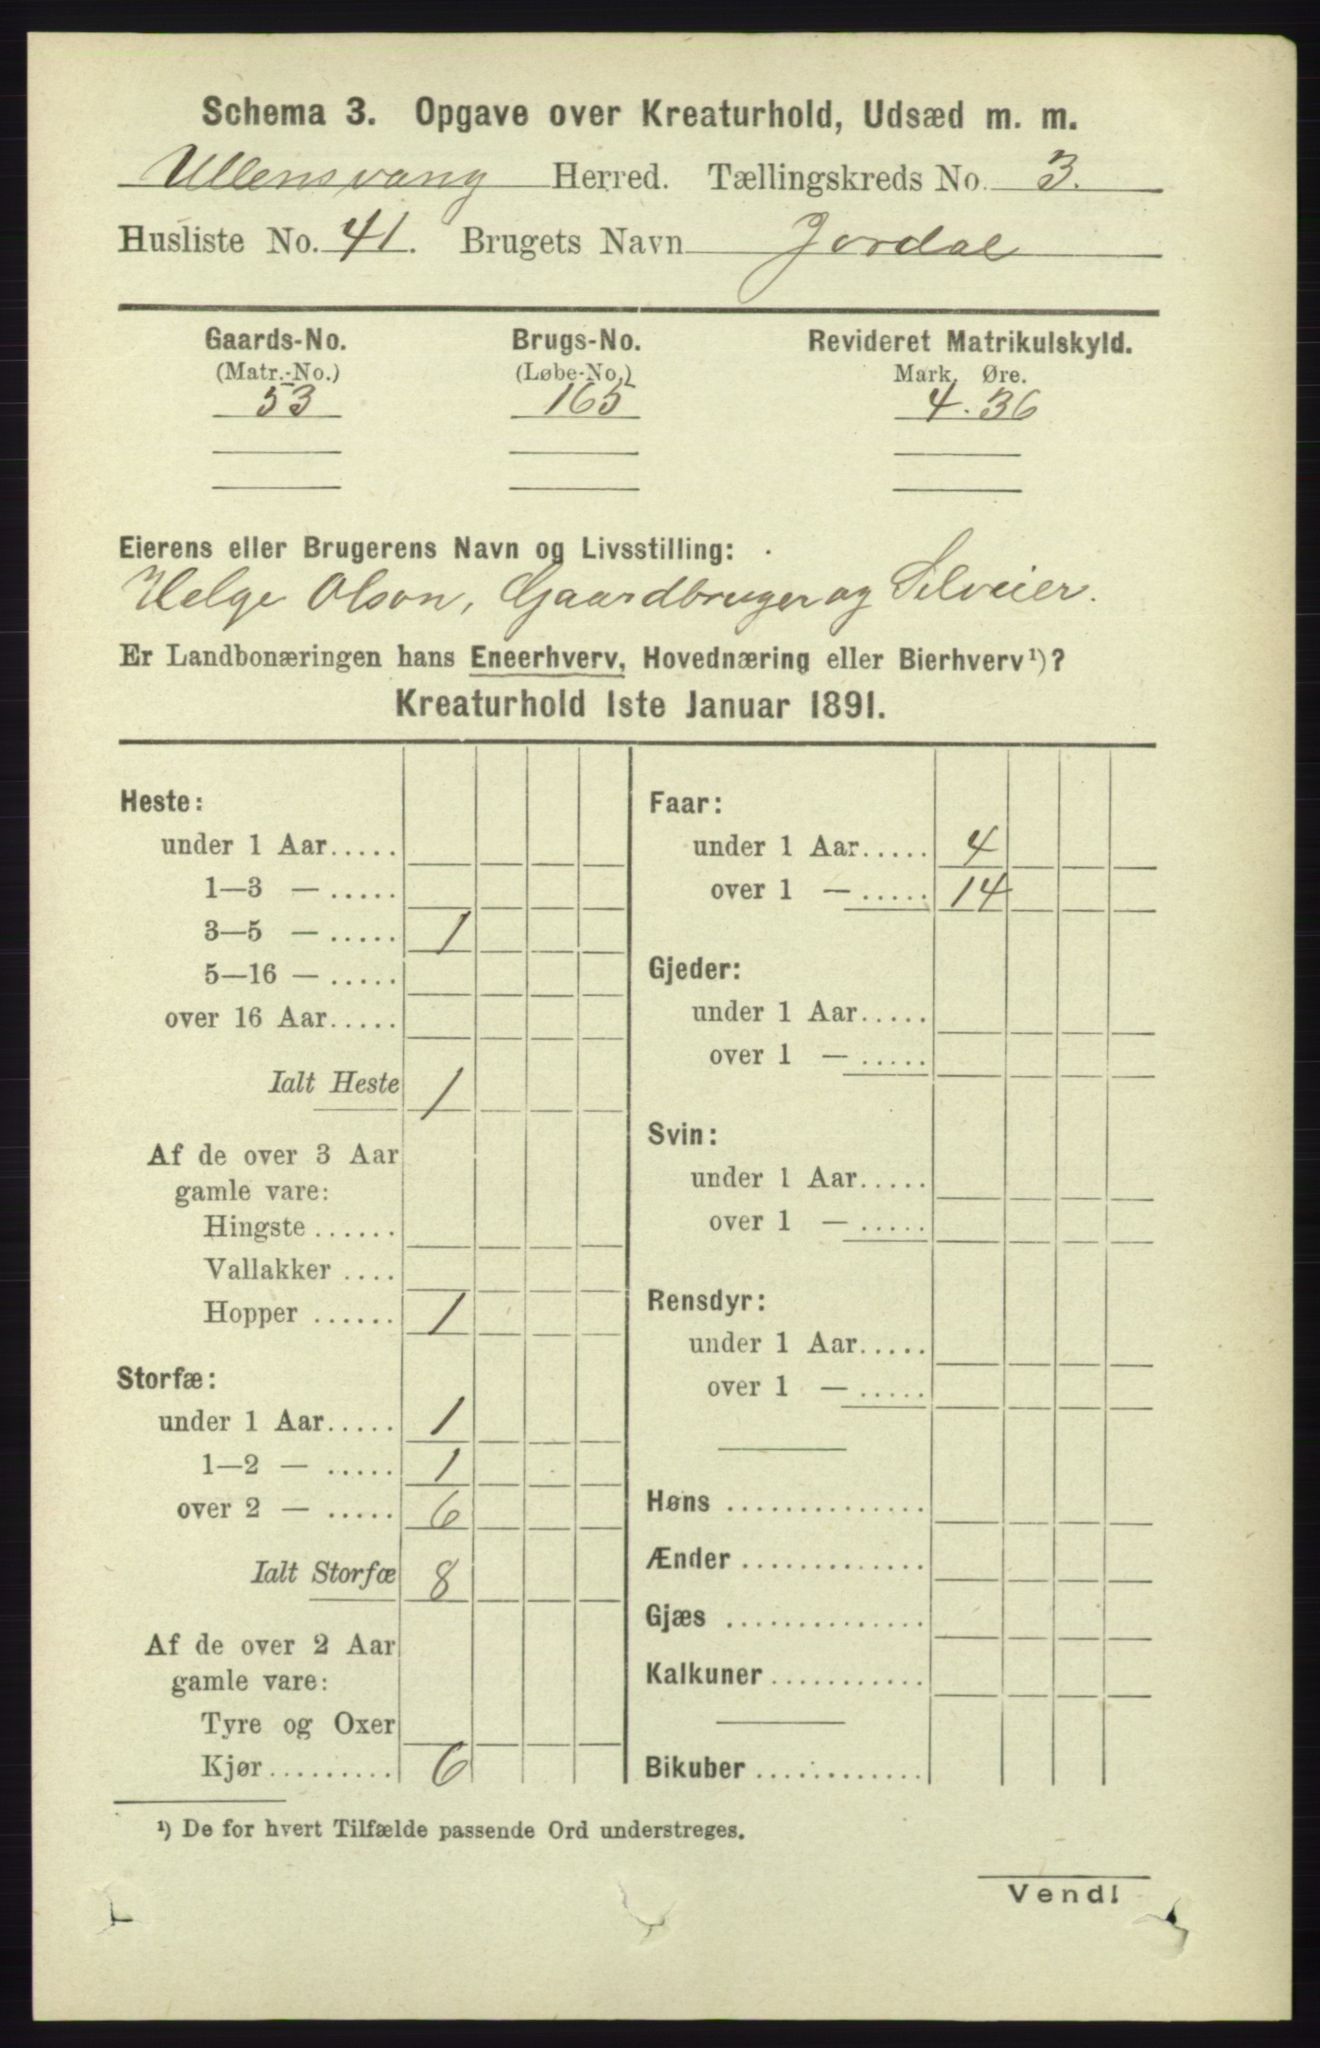 Schema 3. Opgave over Kreaturhold, Udsæd m. m.
Ullensvang Herred. Tællingskreds No. 3.
Husliste No. 41. Brugets Navn Jordal
Gaards-No. Brugs-No. Revideret Matrikulskyld.
(Matr.-No.) (Løbe-No.) Mark. Øre.
53 165 4.36
Eierens eller Brugerens Navn og Livsstilling:
Helge Olson, Gaardbruger og Selveier.
Er Landbonæringen hans Eneerhverv, Hovednæring eller Bierhverv¹)?
Kreaturhold 1ste Januar 1891.
Heste:
under 1 Aar.....
1—3 — .....
3—5 — ..... 1
5—16 — .....
over 16 Aar.....
Ialt Heste 1
Af de over 3 Aar
gamle vare:
Hingste ......
Vallakker ....
Hopper ...... 1
Storfæ:
under 1 Aar..... 1
1—2 — ..... 1
over 2 — ..... 6
Ialt Storfæ 8
Af de over 2 Aar
gamle vare:
Tyre og Oxer
Kjør......... 6
Faar:
under 1 Aar..... 4
over 1 — ..... 14
Gjeder:
under 1 Aar.....
over 1 — .....
Svin:
under 1 Aar.....
over 1 — .....
Rensdyr:
under 1 Aar.....
over 1 — .....
Høns ..............
Ænder .............
Gjæs ..............
Kalkuner...........
Bikuber ............
¹) De for hvert Tilfælde passende Ord understreges.
Vend!